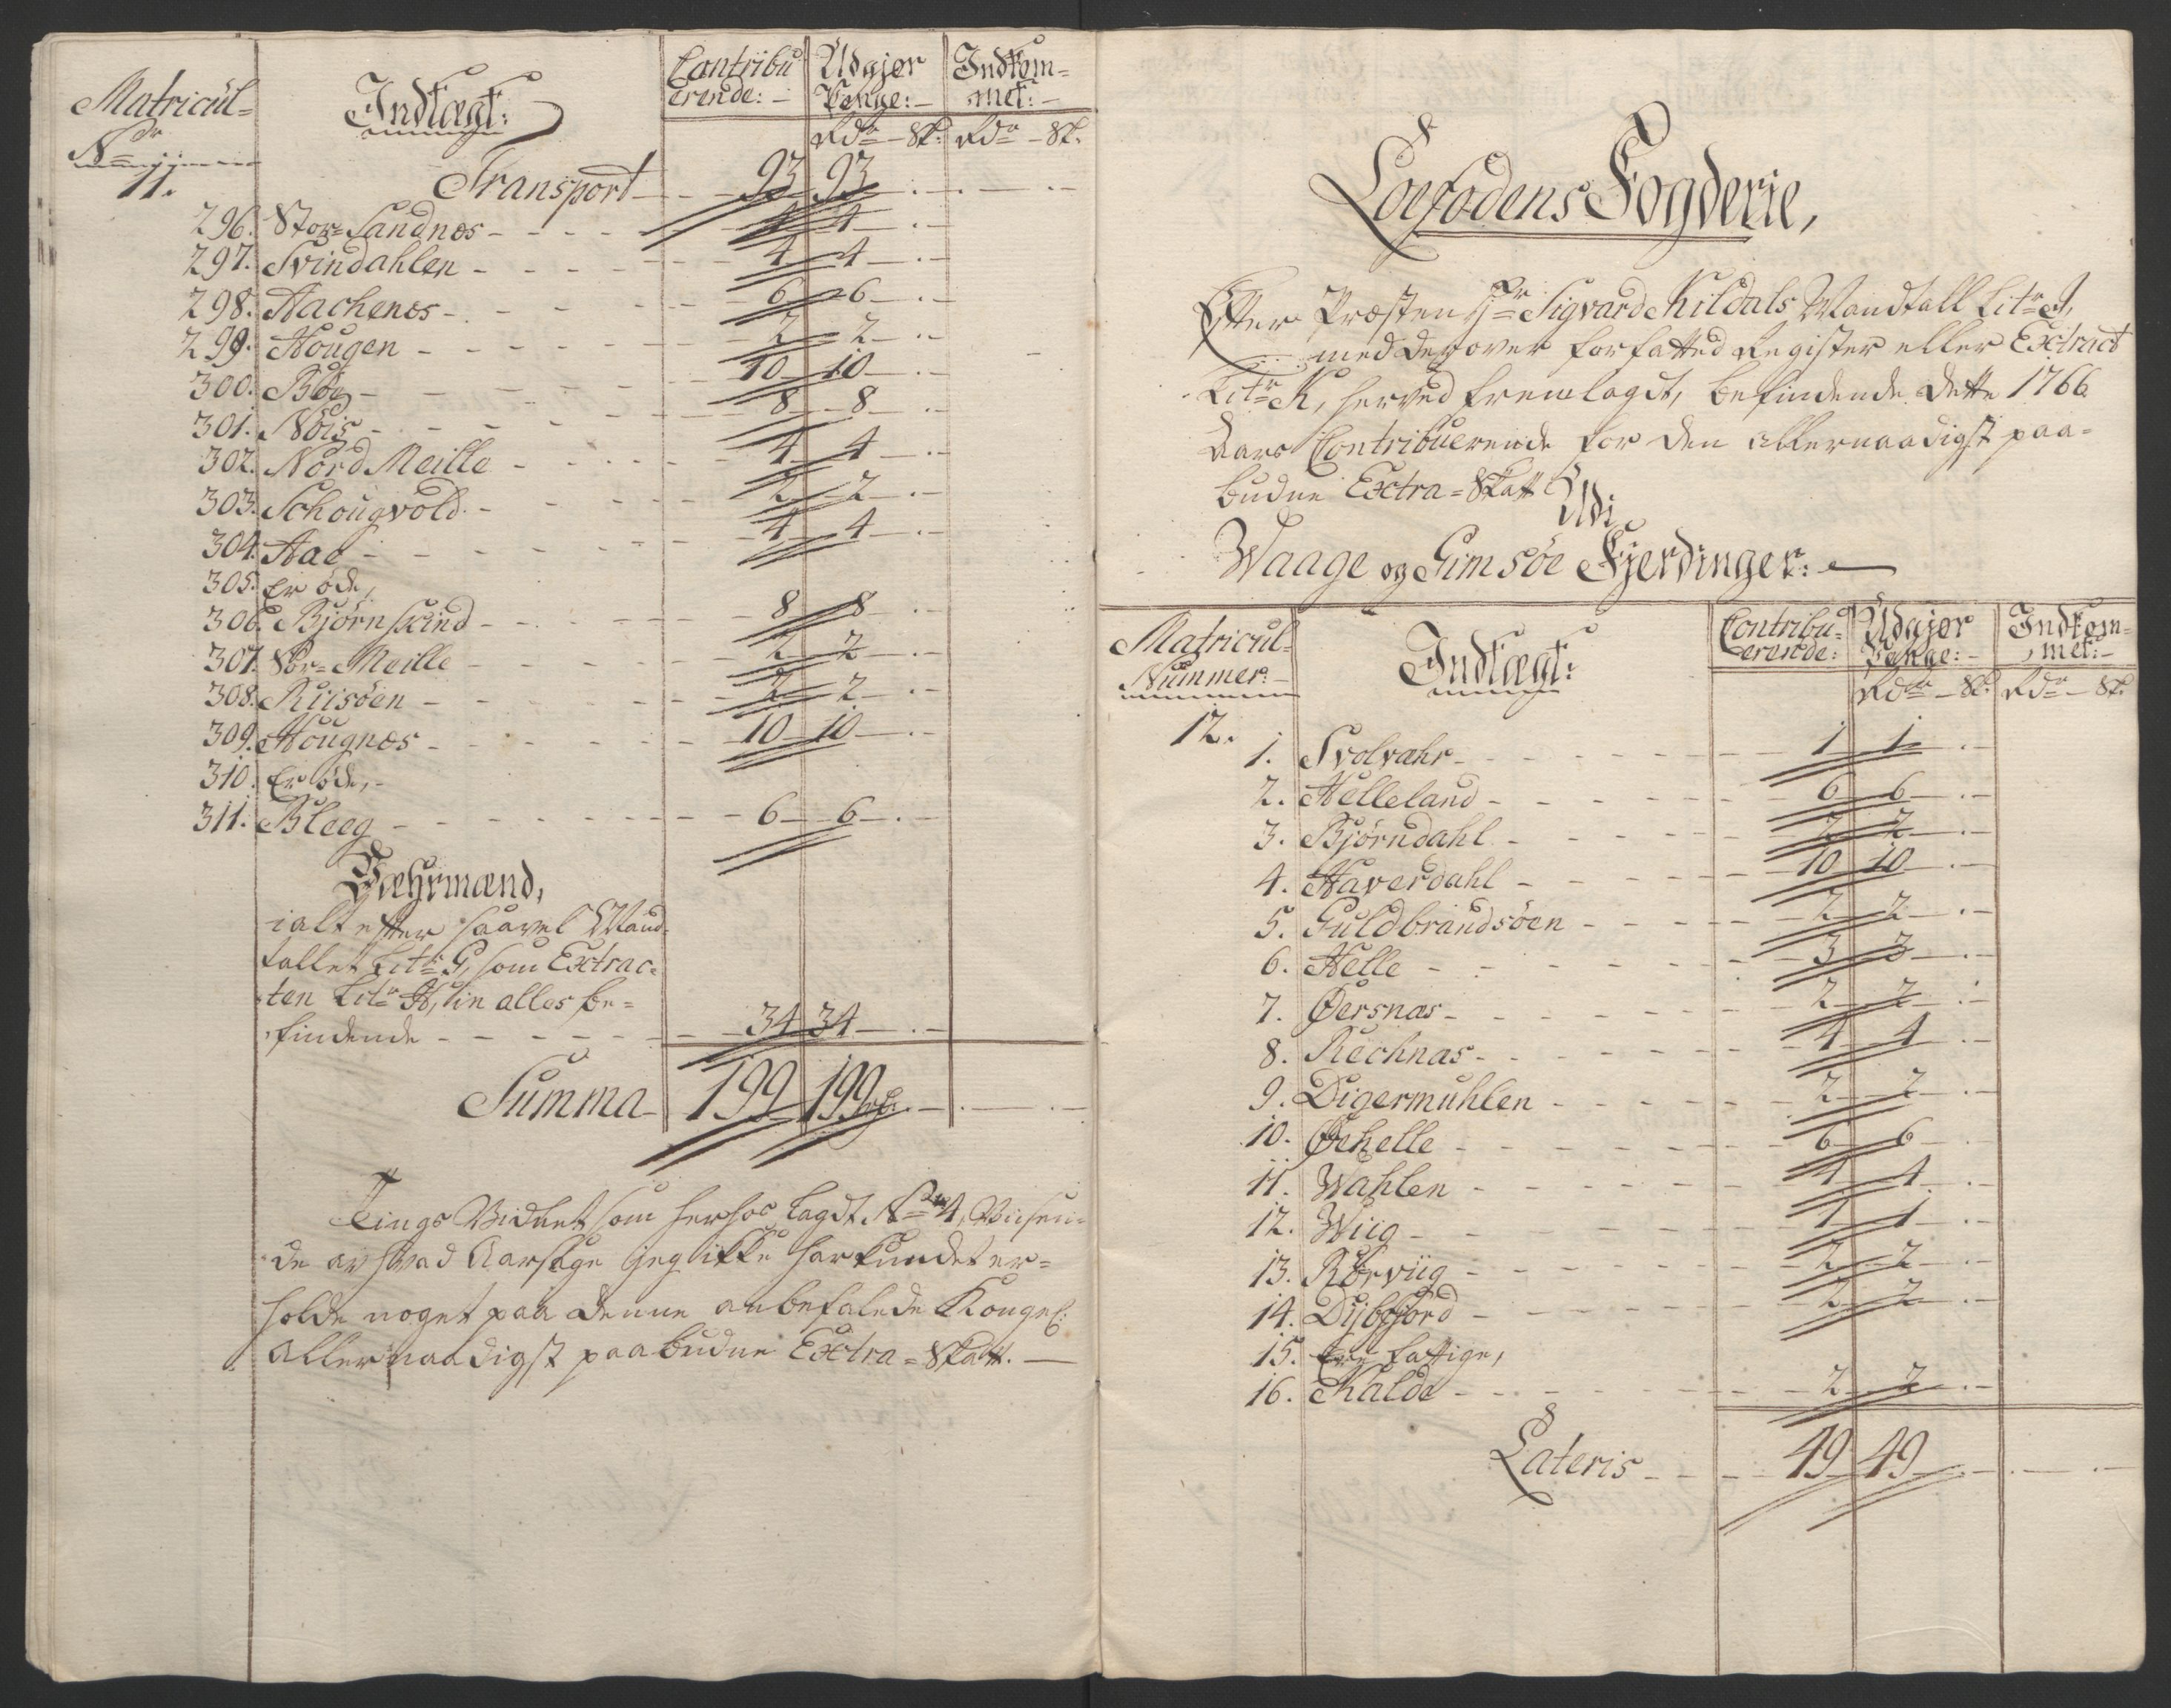 Matricul=
Ndr
Indtægt:
Contribu
erende:
Udgjør
Penge:
Indkom=
met:
Rdr - Sk: Rdr - Sk.
11.
Transport - - 93 93 - . -
296. Stor=Sandnæs - - - - 4 4 - . -
297. Svindahlen - - - - 4 4 - . -
298. Aachenes - - - - 6 6 - . -
299. Hougen - - - - 2 2 - . -
300. Bøe - - - - 10 10 - . -
301. Nois - - - - 8 8 - . -
302. Nord Meille - - - - 4 4 - . -
303. Schougvold - - - - 2 2 - . -
304. Aae - - - - 4 4 - . -
305. Er øde,
306. Bjørnskind - - - - 8 8 - . -
307. Sør=Meille - - - - 2 2 - . -
308. Riisøen - - - - 2 2 - . -
309. Hougnæs - - - - 10 10 - . -
310. Er øde, -
311. Bleeg - - - - 6 6 - . -
Væhrmænd,
ialt efter saavel Mand=
tallet Litr G, som Extrac=
ten Litr H, in alles be=
findende - - - - 34 34 - . -
Summa - 199 199 rdr. -
Tings Vidnet som herhos lagdt No 4, Viisen=
de av hvad Aarsage jeg ikke har kundet er=
holde noget paa denne anbefalede Kongel:
Allernaadigst paabudne Extra=Skatt. -
Loefodens Fogderie,
Efter Præsten Hr Sigvard Kildals Mandtall Litr I,
med derover forfatted Register eller Extract
Litr K, herved fremlagdt, befindende dette 1766
Aars Contribuerende for den allernaadigst paa=
budne Extra=Skatt
Udi
Waage og Gimsøe Fjerdinger: -
Matricul=
Nummer:
Indtægt:
Contribu=
erende:
Udgjør
Penge:
Indkom=
met:
Rdr - Sk: Rdr - Sk.
12.
1. Svolvahr - - - - 1 1 . -
2. Helleland - - - - 6 6 - . -
3. Bjørndahl - - - - 2 2 - . -
4. Haverdahl - - - - 10 10 - . -
5. Guldbrandsøen - - - - 2 2 - . -
6. Helle - - - - 3 3 - . -
7. Øersnæs - - - - 2 2 - . -
8. Rechnæs - - - - 4 4 - . -
9. Digermuhlen - - - - 2 2 - . -
10. Øehelle - - - - 6 6 - . -
11. Wahlen - - - - 4 4 - . -
12. Wiig - - - - 1 1 - . -
13. Rørviig - - - - 2 2 - . -
14. Dijbfjord - - - - 2 2 - . -
15. Ere fattige,
16. Kalde - - - - 2 2 - . -
Lateris - - - 49 49 - . -